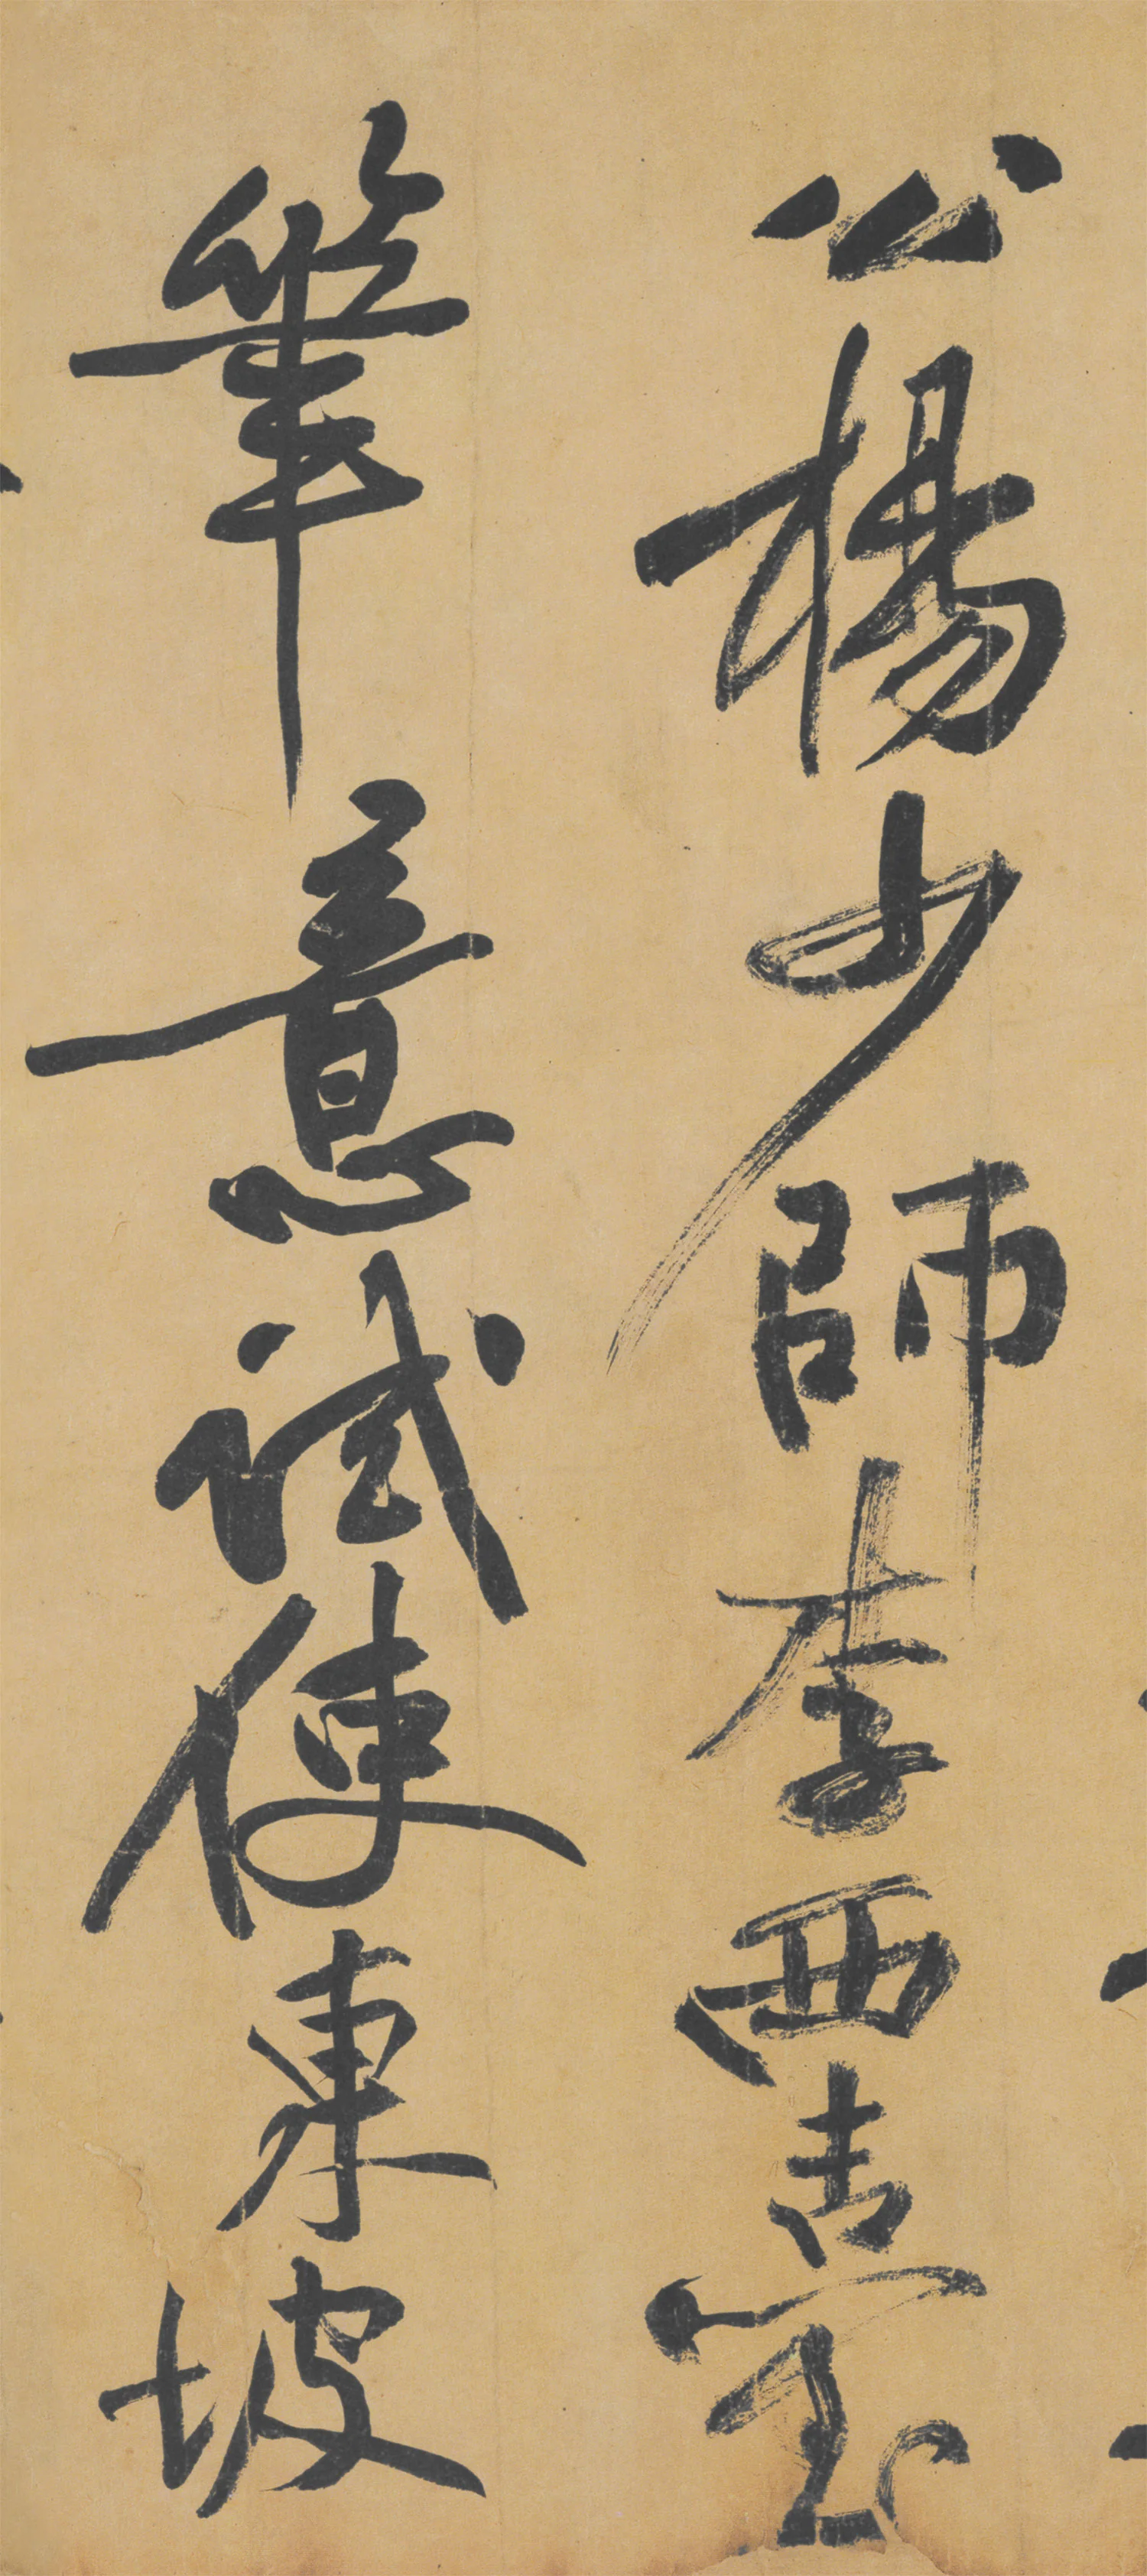 公楊少師李西臺
筆意試使東坡